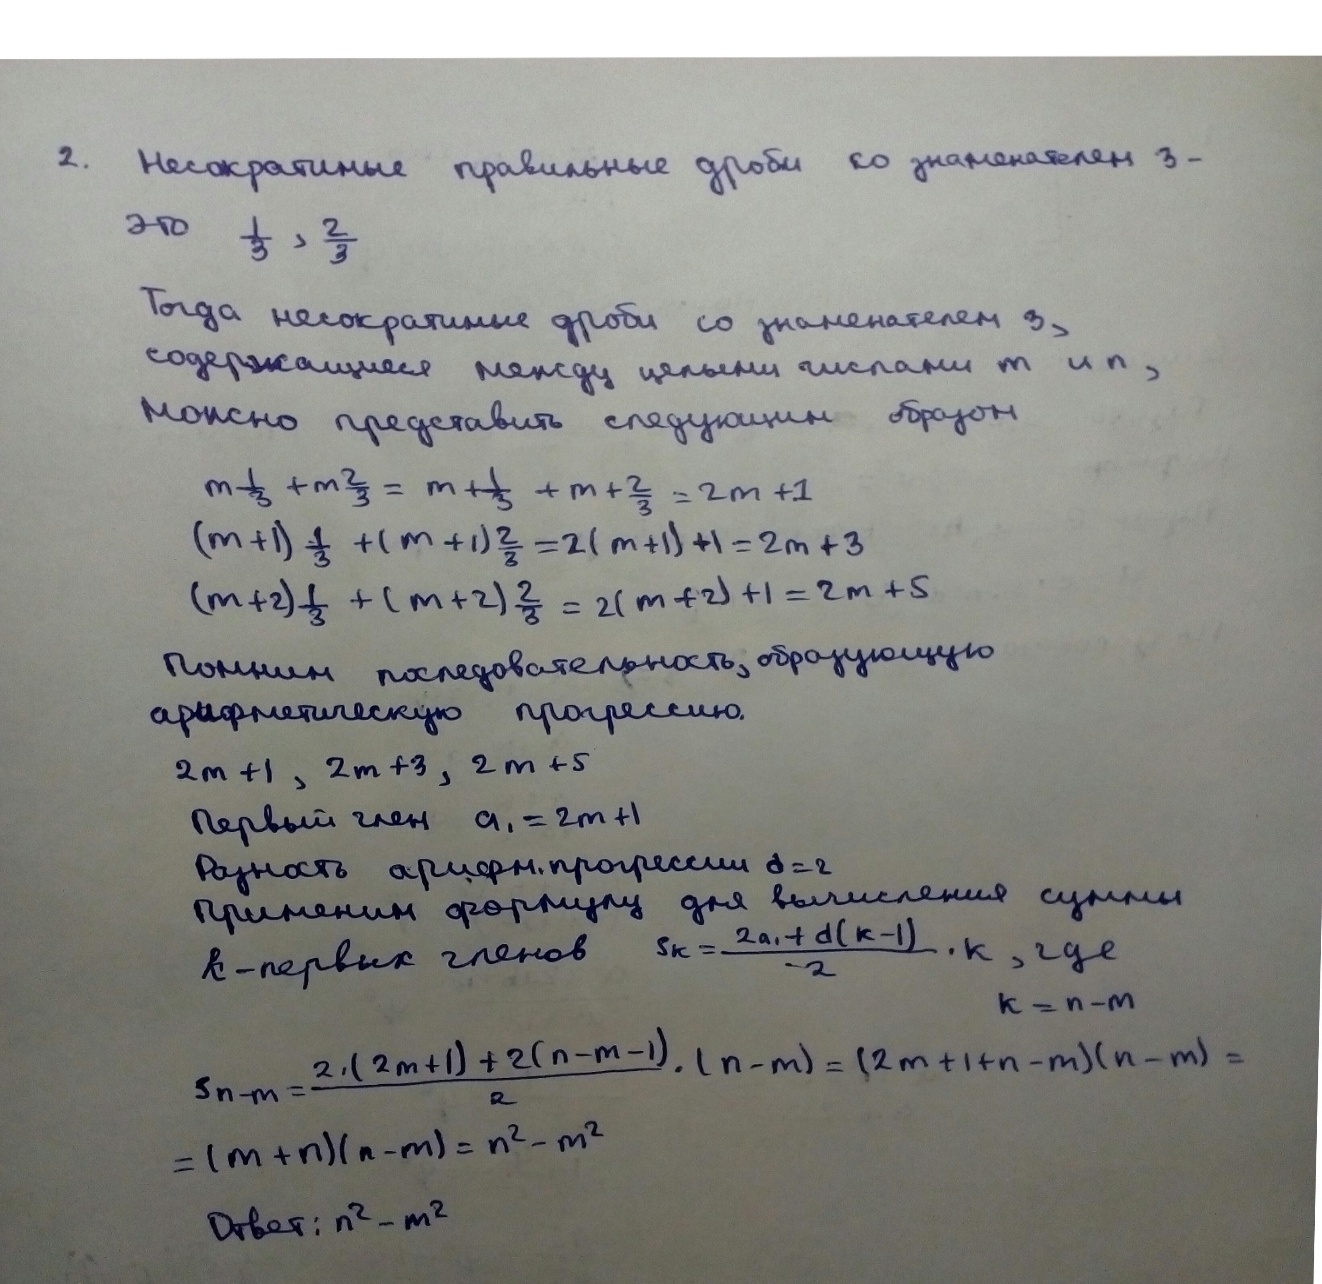 2. Несократимые правильные дроби со знаменателем 3 -
это 1/3, 2/3
Тогда несократимые дроби со знаменателем 3,
содержащиеся между целыми числами m и n,
можно представить следующим образом
m 1/3 + m 2/3 = m + 1/3 + m + 2/3 = 2m + 1
(m+1) 1/3 + (m+1) 2/3 = 2(m+1)+1 = 2m+3
(m+2) 1/3 + (m+2) 2/3 = 2(m+2)+1 = 2m+5
последовательность, образующую
арифметическую прогрессию.
2m+1, 2m+3, 2m+5
Первый член a₁ = 2m+1
Разность арифм. прогрессии d=2
Применим формулу для вычисления суммы
k-первых членов Sk = (2a₁ + d(k-1))/2 · k, где
k = n-m
Sn-m = (2·(2m+1) + 2(n-m-1))/2 · (n-m) = (2m+1+n-m)(n-m) =
= (m+n)(n-m) = n² - m²
Ответ: n² - m²